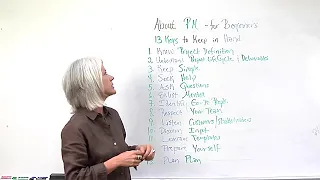 About PM - for Beginners
13 Keys to Keep in Mind
1 Know Project Definition
2 Understand Project LifeCycle / Deliverables
3 Keep Simple
4 Seek Help
5 Ask Questions
6 Enlist Mentor
7 Identify Go-To Ppl
8 Respect Your Team
9 Listen Customers/Stakeholders
10 Input
11 Templates
Prepare Yourself
Plan Plan